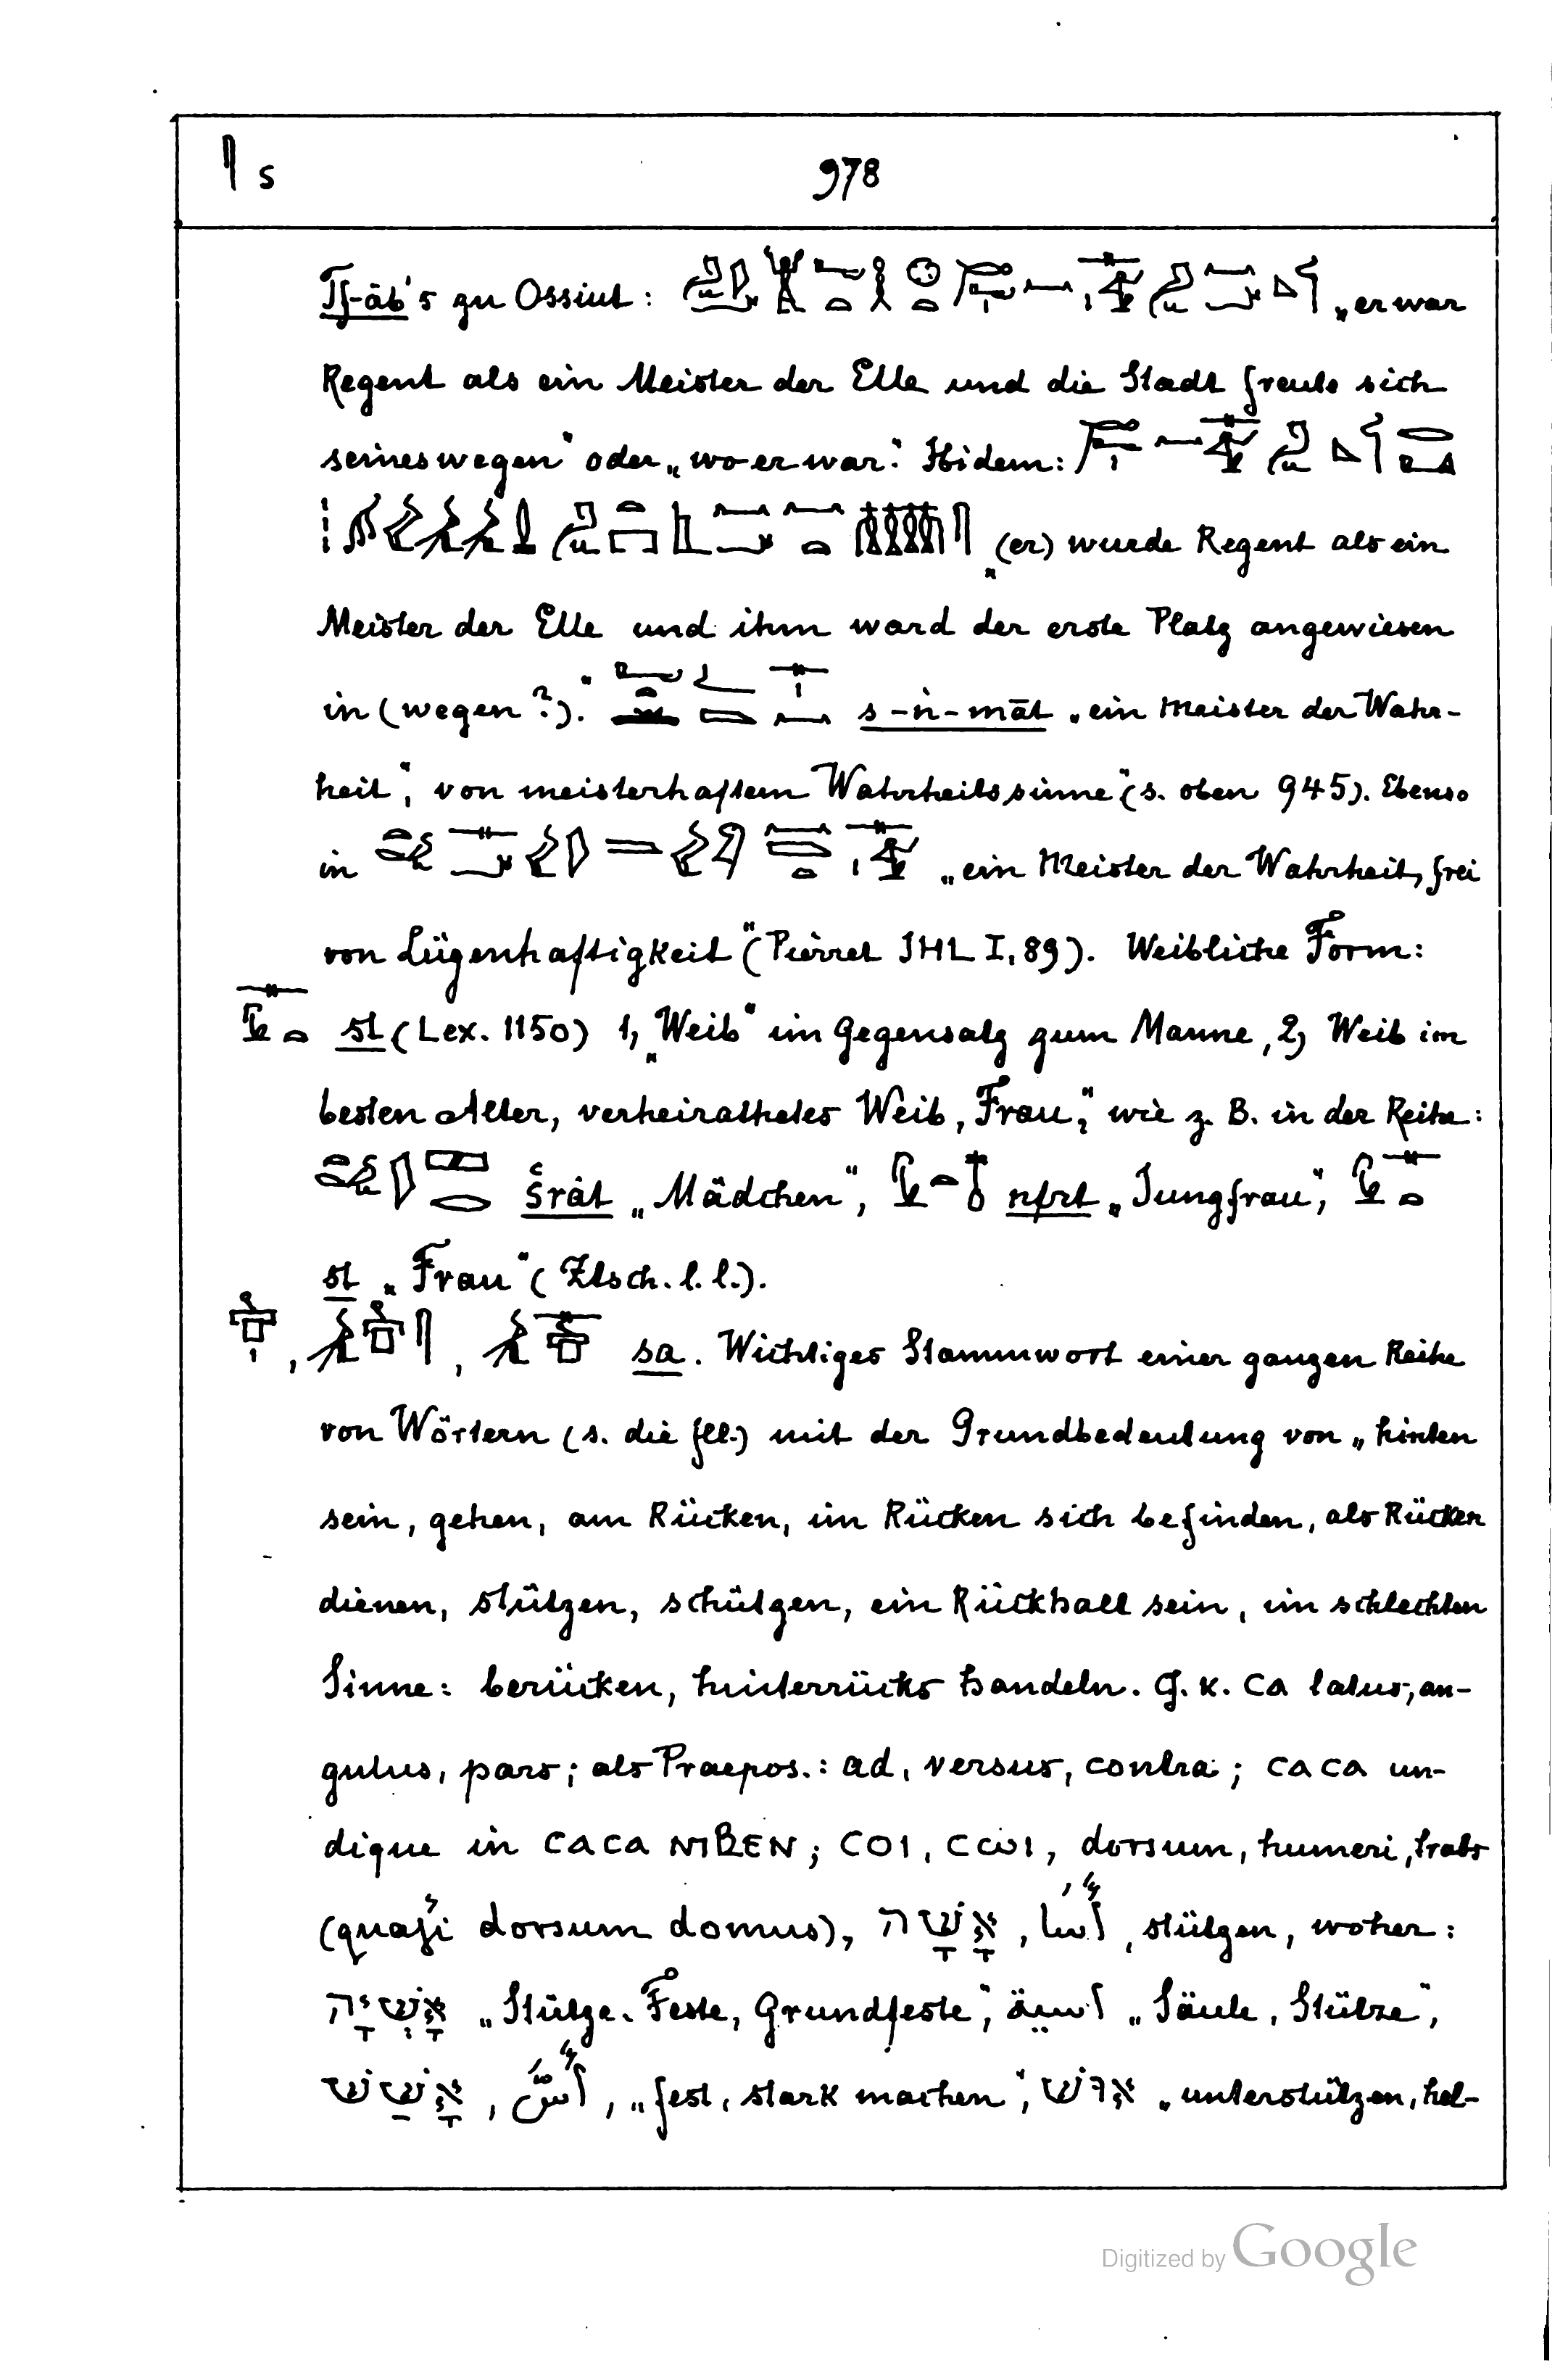 s 978
Tf-āb's zu Ossiut: „er war
Regent als ein Meister der Elle und die Stadt freute sich
seineswegen" oder „wo er war." Ibidem:
„(er) wurde Regent als ein
Meister der Elle und ihm ward der erste Platz angewiesen
in (wegen?)." s-ṅ-māt „ein Meister der Wahr-
heit", von meisterhaftem Wahrheitssinne" (s. oben 945). Ebenso
in „ein Meister der Wahrheit, frei
von Lügenhaftigkeit" (Pierret IHL I, 89). Weibliche Form:
st (Lex. 1150) 1, „Weib" im Gegensatz zum Manne, 2, Weib im
besten Alter, verheirathetes Weib, Frau", wie z. B. in der Reihe:
šrȧt „Mädchen", nfrt „Jungfrau",
st „Frau" (Ztsch. l. l.).
, , sa. Wichtiges Stammwort einer ganzen Reihe
von Wörtern (s. die fll.) mit der Grundbedeutung von „hinten
sein, gehen, am Rücken, im Rücken sich befinden, als Rücken
dienen, stützen, schützen, ein Rückhalt sein, im schlechten
Sinne: berücken, hinterrücks handeln. G. K. ⲥⲁ latus, an-
gulus, pars; als Praepos.: ad, versus, contra; ⲥⲁⲥⲁ un-
dique in ⲥⲁⲥⲁ ⲛⲓⲃⲉⲛ; ⲥⲟⲓ, ⲥⲱⲓ, dorsum, humeri, trabs
(quasi dorsum domus), אָשָׁה, أسا, stützen, woher:
אָשְׁיָה „Stütze. Feste, Grundfeste", اسية „Säule, Stütze",
אָשַׁשׁ, أسّ, „fest, stark machen", „unterstützen, hel-
Digitized by Google